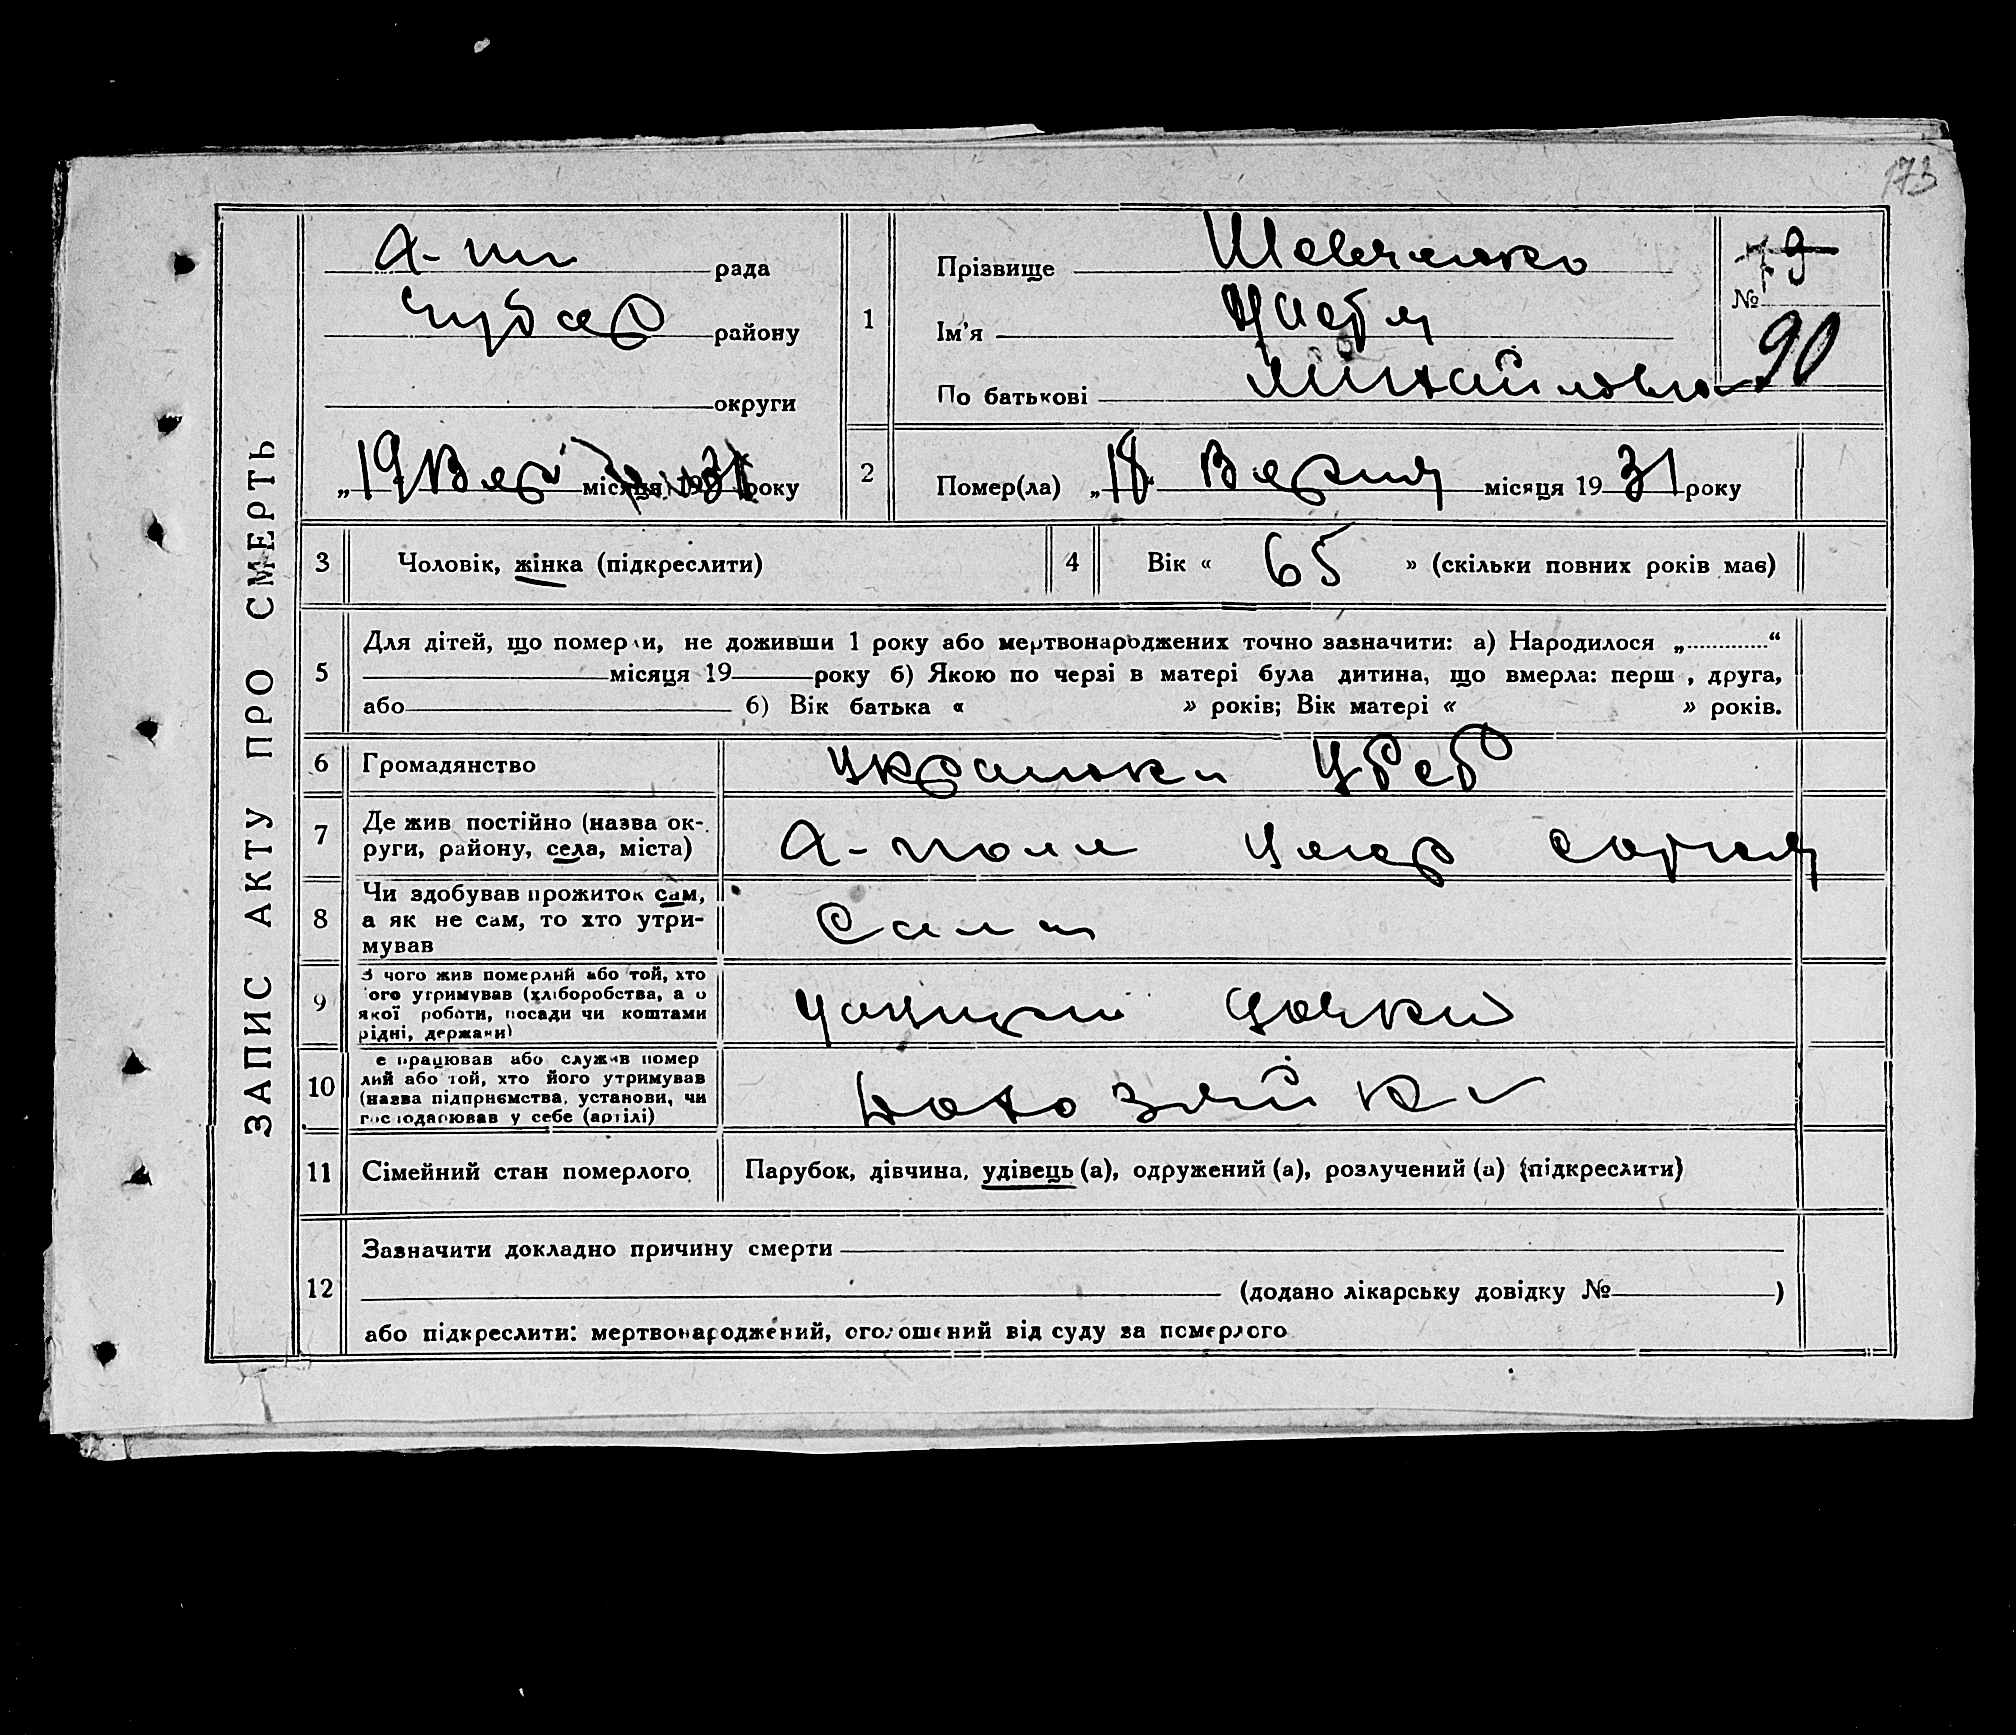 173
ЗАПИС АКТУ ПРО СМЕРТЬ
рада
Чубар району
округи
„19 Вер місяця 1931 року
1
Прізвище Шевченко
Ім'я
По батькові Михайловна
79
№
90
2
Помер(ла) „18" Версня місяця 1931 року
3 Чоловік, жінка (підкреслити)
4 Вік « 65 » (скільки повних років має)
5 Для дітей, що померли, не доживши 1 року або мертвонароджених точно зазначити: а) Народилося „............“
місяця 19 року б) Якою по черзі в матері була дитина, що вмерла: перш , друга,
або б) Вік батька « » років; Вік матері « » років.
6 Громадянство Украинка
7 Де жив постійно (назва ок-
руги, району, села, міста)
А-поль
8 Чи здобував прожиток сам,
а як не сам, то хто утри-
мував
Сама
9 З чого жив померлий або той, хто
його утримував (хліборобства, а о
якої роботи, посади чи коштами
рідні, держави)
10 е працював або служив помер
лий або той, хто його утримував
(назва підприємства, установи, чи
господарював у себе (артілі)
11 Сімейний стан померлого Парубок, дівчина, удівець (а), одружений (а), розлучений (а) (підкреслити)
12 Зазначити докладно причину смерти
(додано лікарську довідку № )
або підкреслити: мертвонароджений, оголошений від суду за померлого